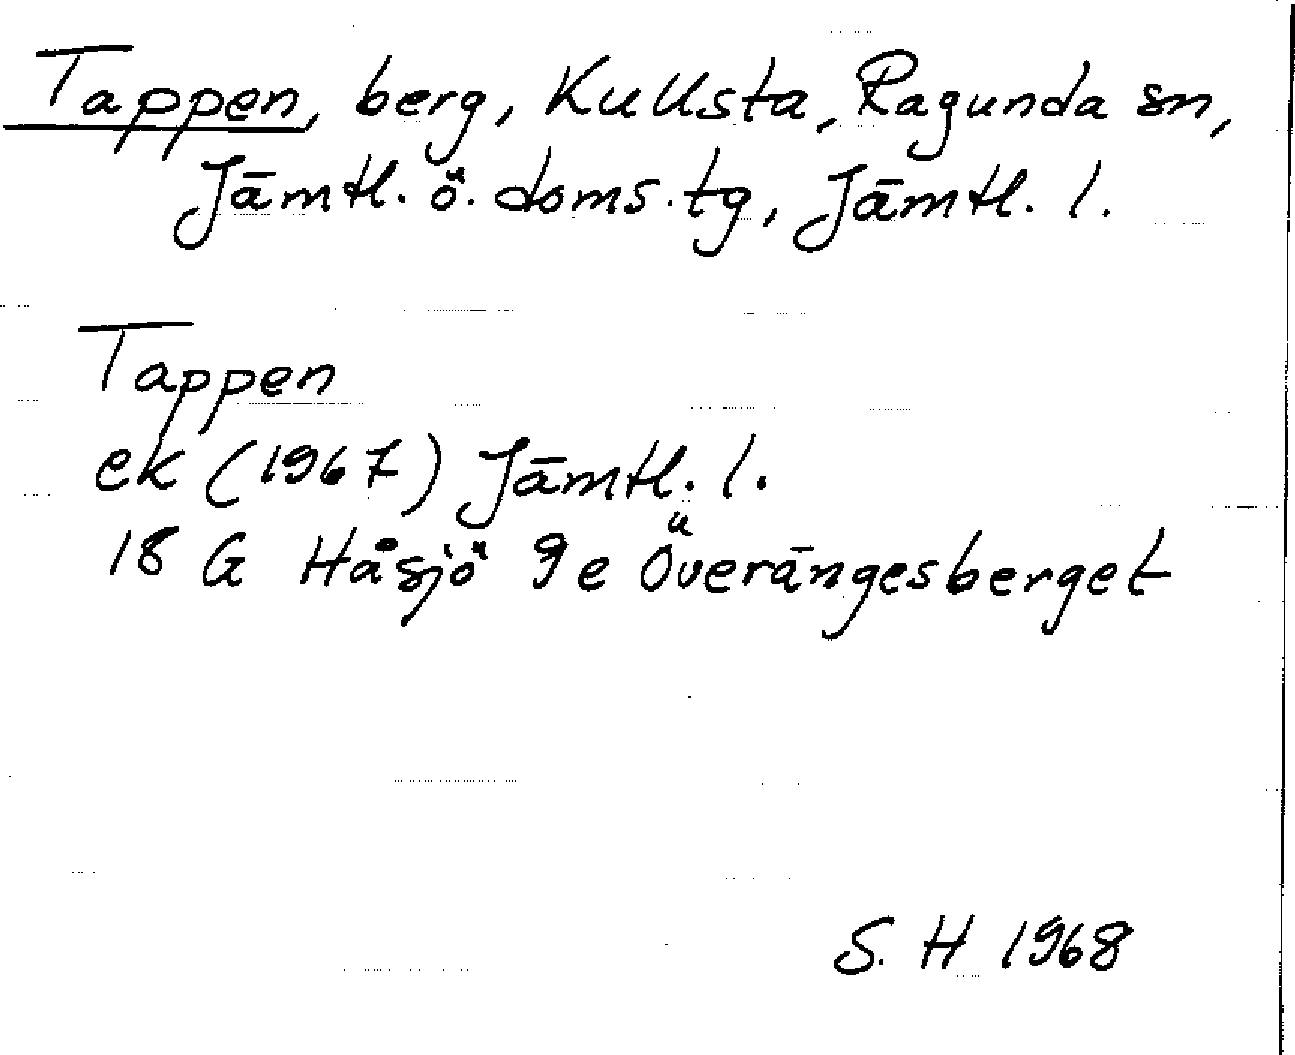 Tappen, berg, Kullsta, Ragunda sn,
Jämtl. ö. doms.tg, Jämtl. l.
Tappen
ek (1967) Jämtl. l.
18 G Håsjö 9e Överängesberget
S. H 1968